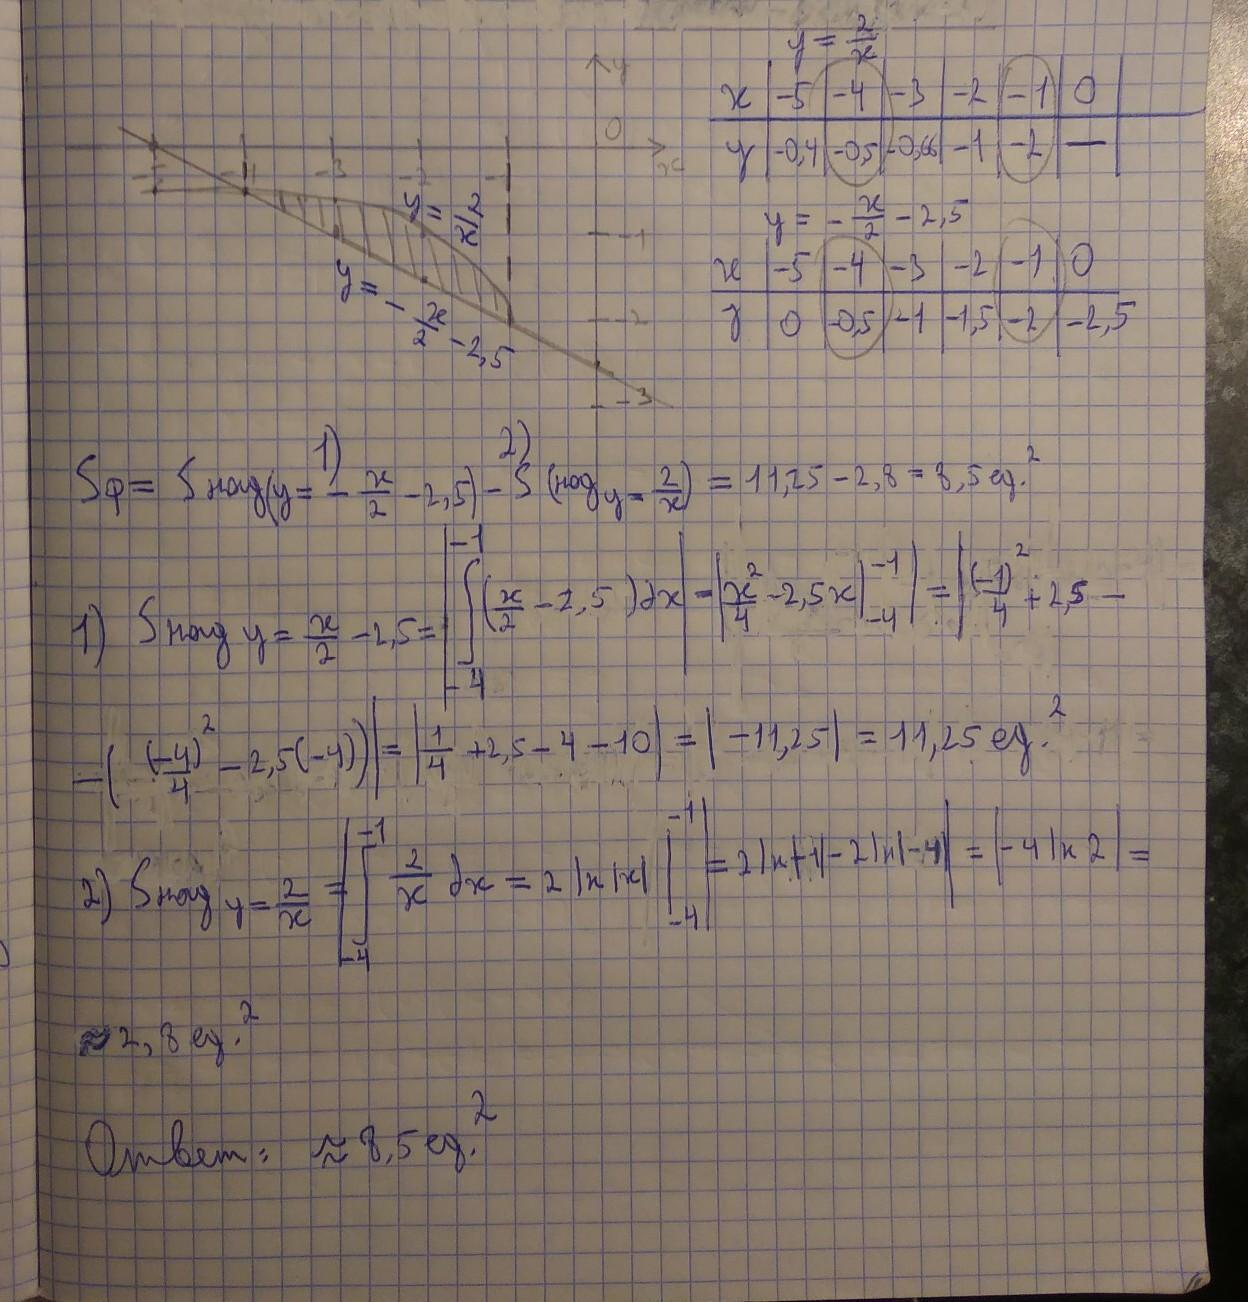 y = 2/x
x | -5 | -4 | -3 | -2 | -1 | 0
y | -0,4 | -0,5 | -0,66 | -1 | -2 | —
y = -x/2 - 2,5
x | -5 | -4 | -3 | -2 | -1 | 0
y | 0 | -0,5 | -1 | -1,5 | -2 | -2,5
y
0
x
-4 -3 -2 -1
-1
-2
-3
y = 2/x
y = -x/2 - 2,5
1) 2)
Sф = S над(y = -x/2 - 2,5) - S (над y = 2/x) = 11,25 - 2,8 = 8,5 ед.²
1) S над y = x/2 - 2,5 = |∫_{-4}^{-1} (x/2 - 2,5)dx| = |x²/4 - 2,5x|_{-4}^{-1}| = |(-1)²/4 + 2,5 -
- ((-4)²/4 - 2,5(-4))| = |1/4 + 2,5 - 4 - 10| = |-11,25| = 11,25 ед.²
2) S над y = 2/x = |∫_{-4}^{-1} 2/x dx = 2 ln|x| |_{-4}^{-1}| = 2 ln|-1| - 2 ln|-4|| = |-4 ln 2| =
≈ 2,8 ед.²
Ответ: ≈ 8,5 ед.²